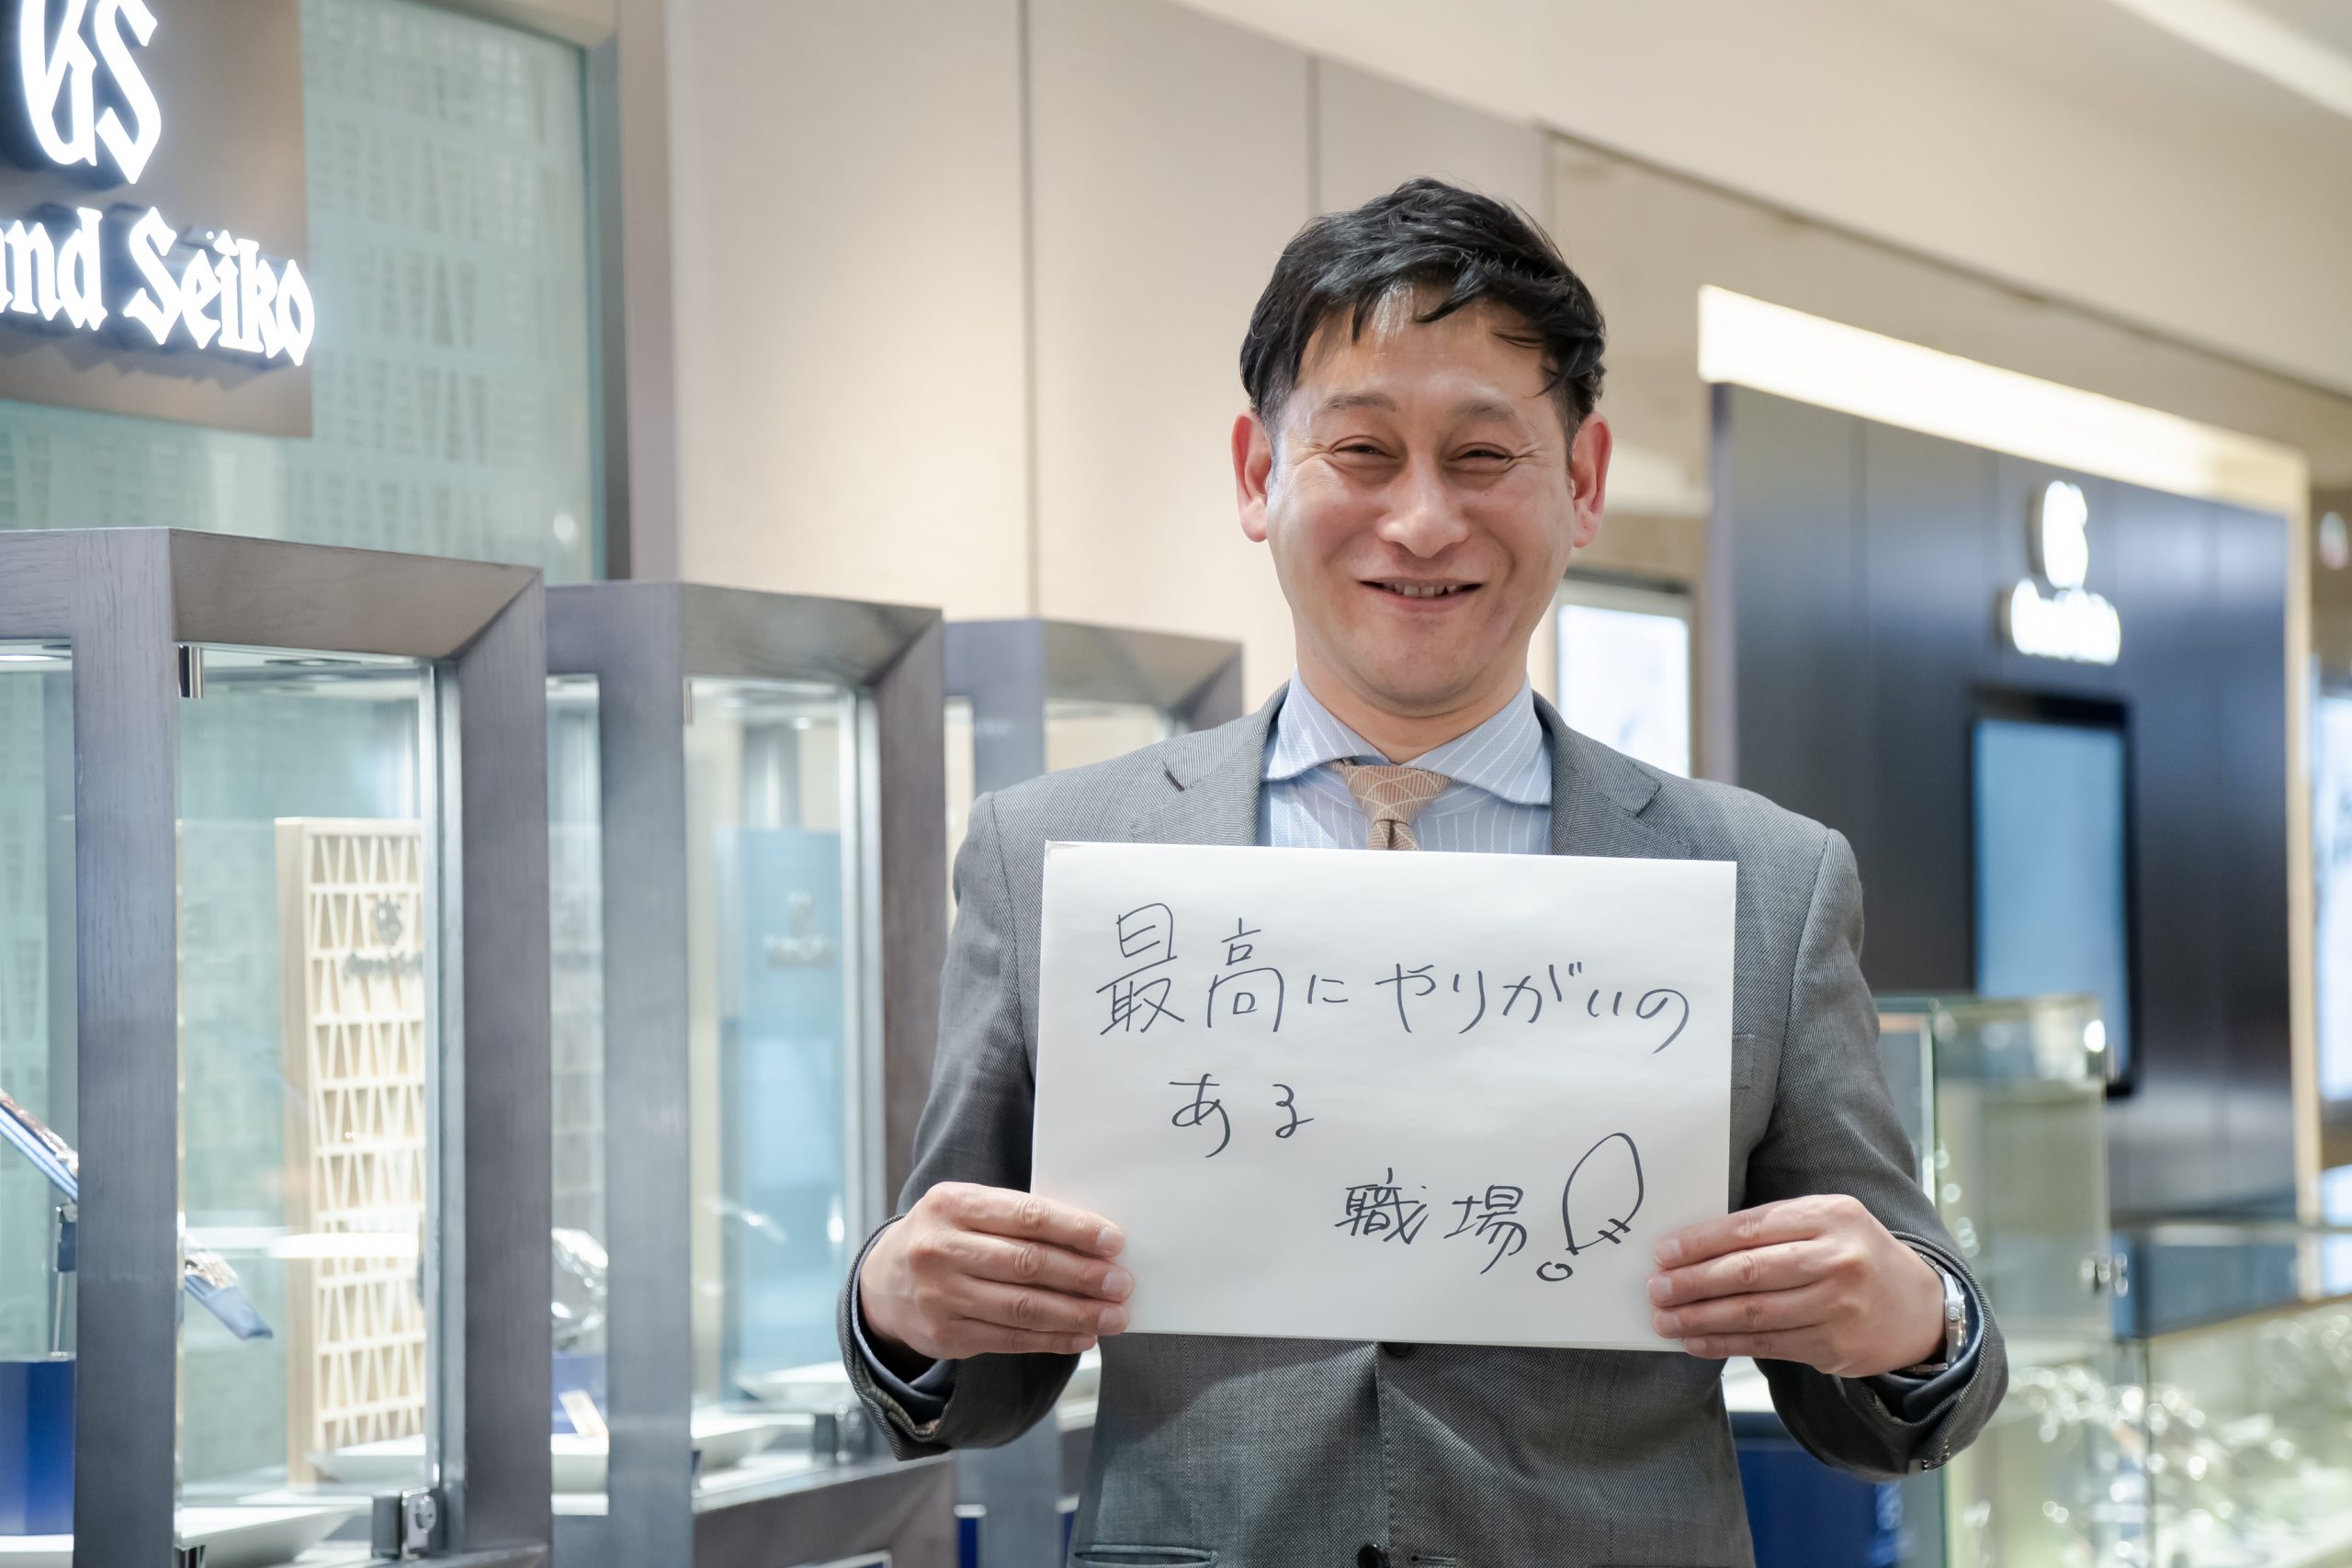 GS
nd Seiko
最高にやりがいの
ある
職場!